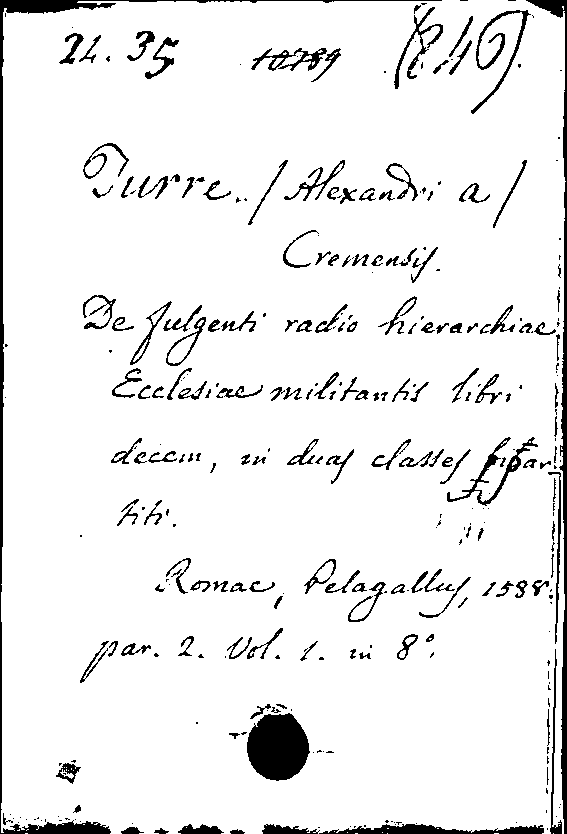 24.35 10789 (846).
Turre../Alexandri a/
Cremensis.
De fulgenti radio hierarchiae
Ecclesiae militantis libri
decem, in duas classes
titi.
Romae, Pelagallus, 1588.
par. 2. Vol. 1. in 8°.